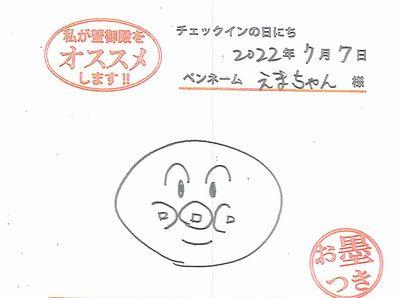 私が蟹御殿を
オススメ
します!!
チェックインの日にち
2022年7月7日
ペンネーム えまちゃん 様
お墨
つき